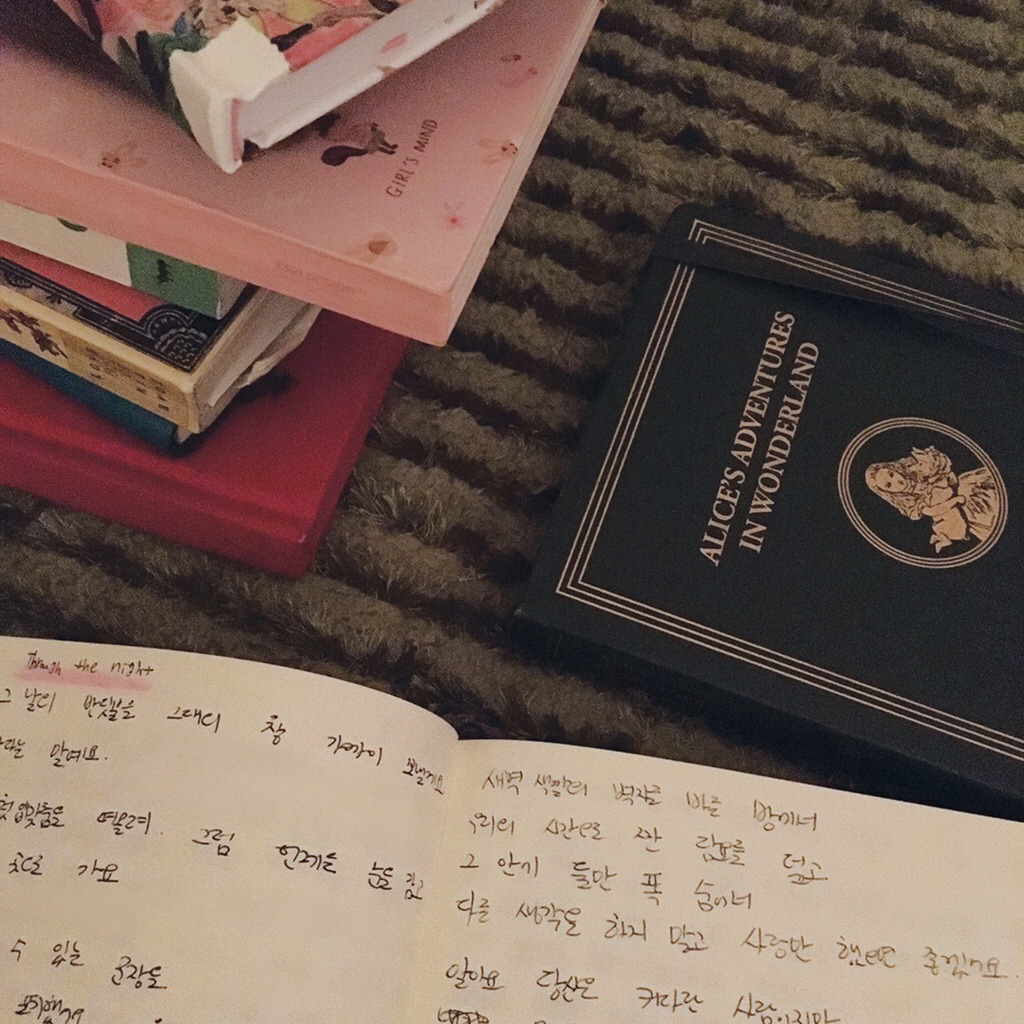 GIRL'S MIND
ALICE'S ADVENTURES
IN WONDERLAND
Through the night
그 날의 반딧불을 그대의 창 가까이 보낼게요
라는 말예요.
첫 입맞춤을 떠올려. 그럼 언제든 눈을 감고
곳으로 가요
수 있는 문장을
새벽 색깔의 벽지를 바른 방에서
우리의 시간으로 짠 담요를 덮고
그 안에 둘만 푹 숨어서
다른 생각은 하지 말고 사랑만 했으면 좋겠어요.
알아요 당신은 커다란 사람이지만